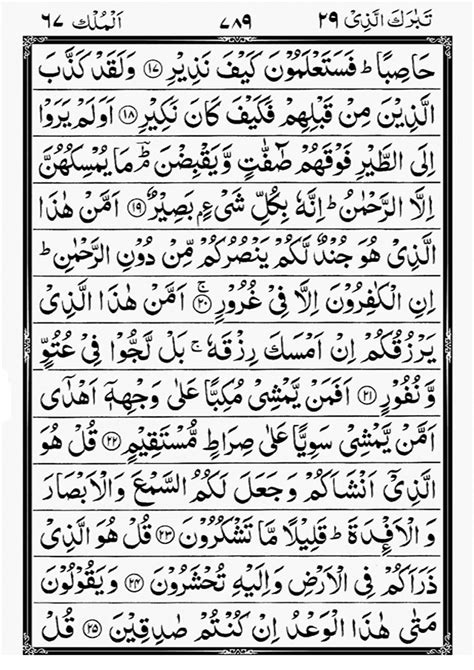 تَبٰرَكَ الَّذِیْ ٢٩ ٧٨٩ اَلْمُلْك ٦٧
حَاصِبًا ؕ فَسَتَعْلَمُوْنَ كَیْفَ نَذِیْرِ ﴿١٧﴾ وَلَقَدْ كَذَّبَ
الَّذِیْنَ مِنْ قَبْلِهِمْ فَكَیْفَ كَانَ نَكِیْرِ ﴿١٨﴾ اَوَلَمْ یَرَوْا
اِلَی الطَّیْرِ فَوْقَهُمْ صٰٓفّٰتٍ وَّیَقْبِضْنَ ؔۘ مَا یُمْسِكُهُنَّ
اِلَّا الرَّحْمٰنُ ؕ اِنَّهٗ بِكُلِّ شَیْءٍۭ بَصِیْرٌ ﴿١٩﴾ اَمَّنْ هٰذَا
الَّذِیْ هُوَ جُنْدٌ لَّكُمْ یَنْصُرُكُمْ مِّنْ دُوْنِ الرَّحْمٰنِ ؕ
اِنِ الْكٰفِرُوْنَ اِلَّا فِیْ غُرُوْرٍ ۚ﴿٢٠﴾ اَمَّنْ هٰذَا الَّذِیْ
یَرْزُقُكُمْ اِنْ اَمْسَكَ رِزْقَهٗ ۚ بَلْ لَّجُّوْا فِیْ عُتُوٍّ
وَّنُفُوْرٍ ﴿٢١﴾ اَفَمَنْ یَّمْشِیْ مُكِبًّا عَلٰی وَجْهِهٖۤ اَهْدٰۤی
اَمَّنْ یَّمْشِیْ سَوِیًّا عَلٰی صِرَاطٍ مُّسْتَقِیْمٍ ﴿٢٢﴾ قُلْ هُوَ
الَّذِیْۤ اَنْشَاَكُمْ وَجَعَلَ لَكُمُ السَّمْعَ وَالْاَبْصَارَ
وَالْاَفْـِٕدَةَ ؕ قَلِیْلًا مَّا تَشْكُرُوْنَ ﴿٢٣﴾ قُلْ هُوَ الَّذِیْ
ذَرَاَكُمْ فِی الْاَرْضِ وَاِلَیْهِ تُحْشَرُوْنَ ﴿٢٤﴾ وَیَقُوْلُوْنَ
مَتٰی هٰذَا الْوَعْدُ اِنْ كُنْتُمْ صٰدِقِیْنَ ﴿٢٥﴾ قُلْ